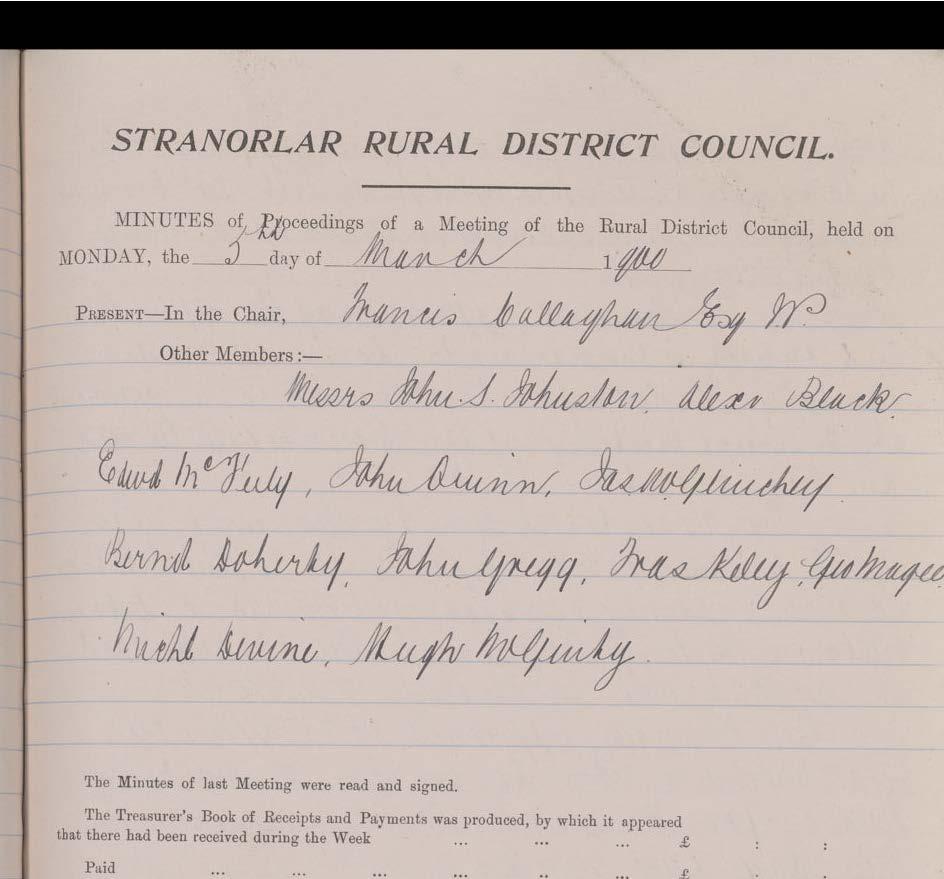 STRANORLAR RURAL DISTRICT COUNCIL.
MINUTES of Proceedings of a Meeting of the Rural District Council, held on
MONDAY, the 5th day of March 1900
PRESENT—In the Chair, Francis Callaghan Esq
Other Members:—
Messrs John S. Johnston, Alexr Black.
Edwd McFeely, John Quinn, Jas McGlinchey
Bernd Doherty, John Gregg, Fras Kelly, Geo Magee
Michl Devine, Hugh McGinty.
The Minutes of last Meeting were read and signed.
The Treasurer's Book of Receipts and Payments was produced, by which it appeared
that there had been received during the Week ... ... ... £ : :
Paid ... ... ... ... .. ... £